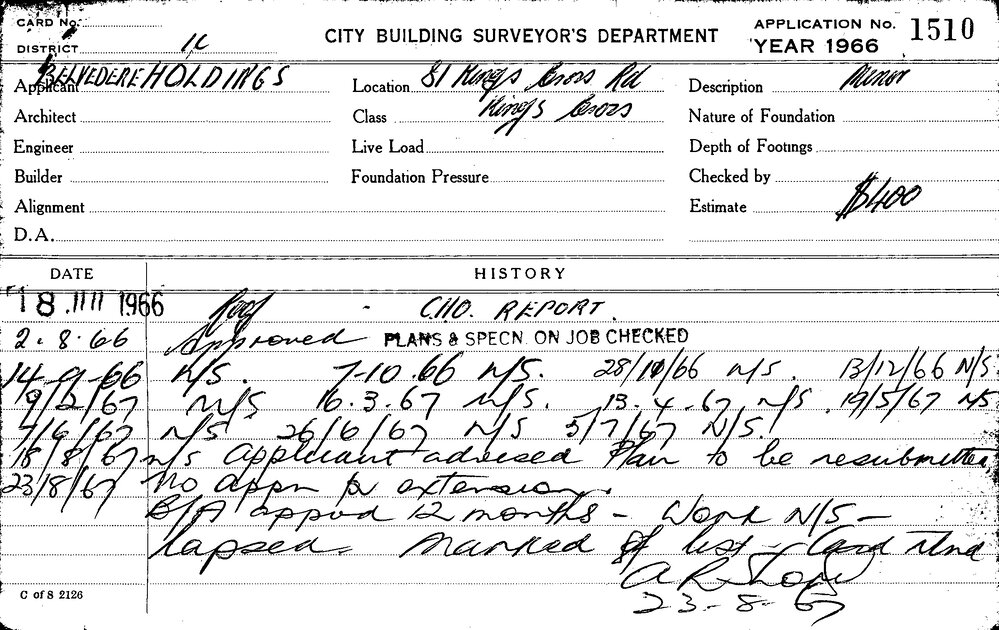 CARD No.
CITY BUILDING SURVEYOR'S DEPARTMENT
APPLICATION No. 1510
DISTRICT
YEAR 1966
Applicant BELVEDERE HOLDINGS
Location 81 Kings Cross Rd
Description Minor
Architect
Class Kings Cross
Nature of Foundation
Engineer
Live Load
Depth of Footings
Builder
Foundation Pressure
Checked by
Alignment
Estimate $400
D.A.
DATE HISTORY
18 JUL 1966 Roof - C.H.O. REPORT.
2.8.66 Approved PLANS & SPECN. ON JOB CHECKED
14-9-66 N/S. 7-10.66 N/S. 28/10/66 N/S. 13/12/66 N/S.
9/2/67 N/S 16.3.67 N/S. 13.4.67 N/S. 19/5/67 N/S
7/6/67 N/S 26/6/67 N/S 5/7/67 N/S.
18/8/67 N/S Applicant advised Plan to be resubmitted,
23/8/67 No appn for extension.
B/A appvd 12 months - Work N/S -
lapsed. Marked off list - Card
23-8-67
C of S 2126